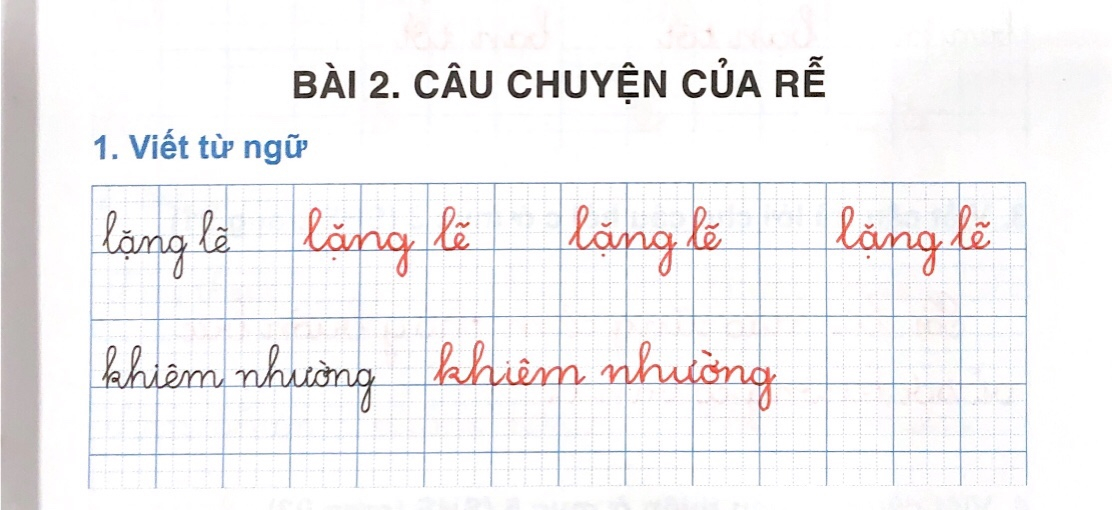 BÀI 2. CÂU CHUYỆN CỦA RỄ
1. Viết từ ngữ
lặng lẽ lặng lẽ lặng lẽ lặng lẽ
khiêm nhường khiêm nhường